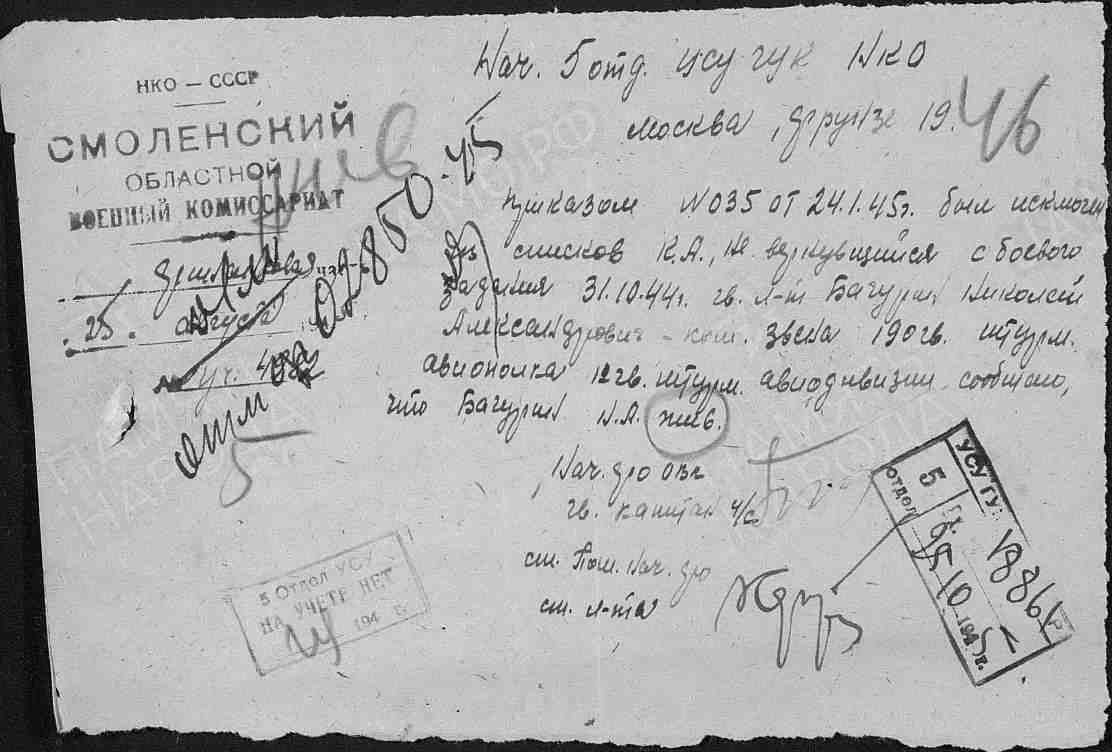 НКО — СССР
СМОЛЕНСКИЙ
ОБЛАСТНОЙ
ВОЕННЫЙ КОМИССАРИАТ
25. августа
Нач. 5 отд. УСУ ГУК НКО
Москва, Фрунзе 19.
46
Приказом № 035 от 24.1.45г. был исключен
из списков К.А., не вернувшийся с боевого
задания 31.10.44г. гв. л-т Батурин Николай
Александрович – ком. звена 190 гв. штурм.
авиополка 12 гв. штурм. авиодивизии. сообщаю,
что Батурин Н.А. жив.
Нач.
гв. капитан
ст. Пом. Нач.
ст. л-та
02850
45
5
5 ОТДЕЛ УСУ
НА УЧЕТЕ НЕТ
194 г.
УСУ ГУ
5
ОТДЕЛ
10 1945г.